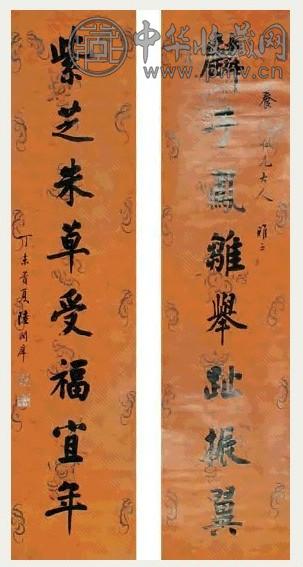 中华收藏网
養
仁兄大人
雅正
麟子鳳雛舉趾振翼
紫芝朱草受福宜年
丁未首夏陸潤庠